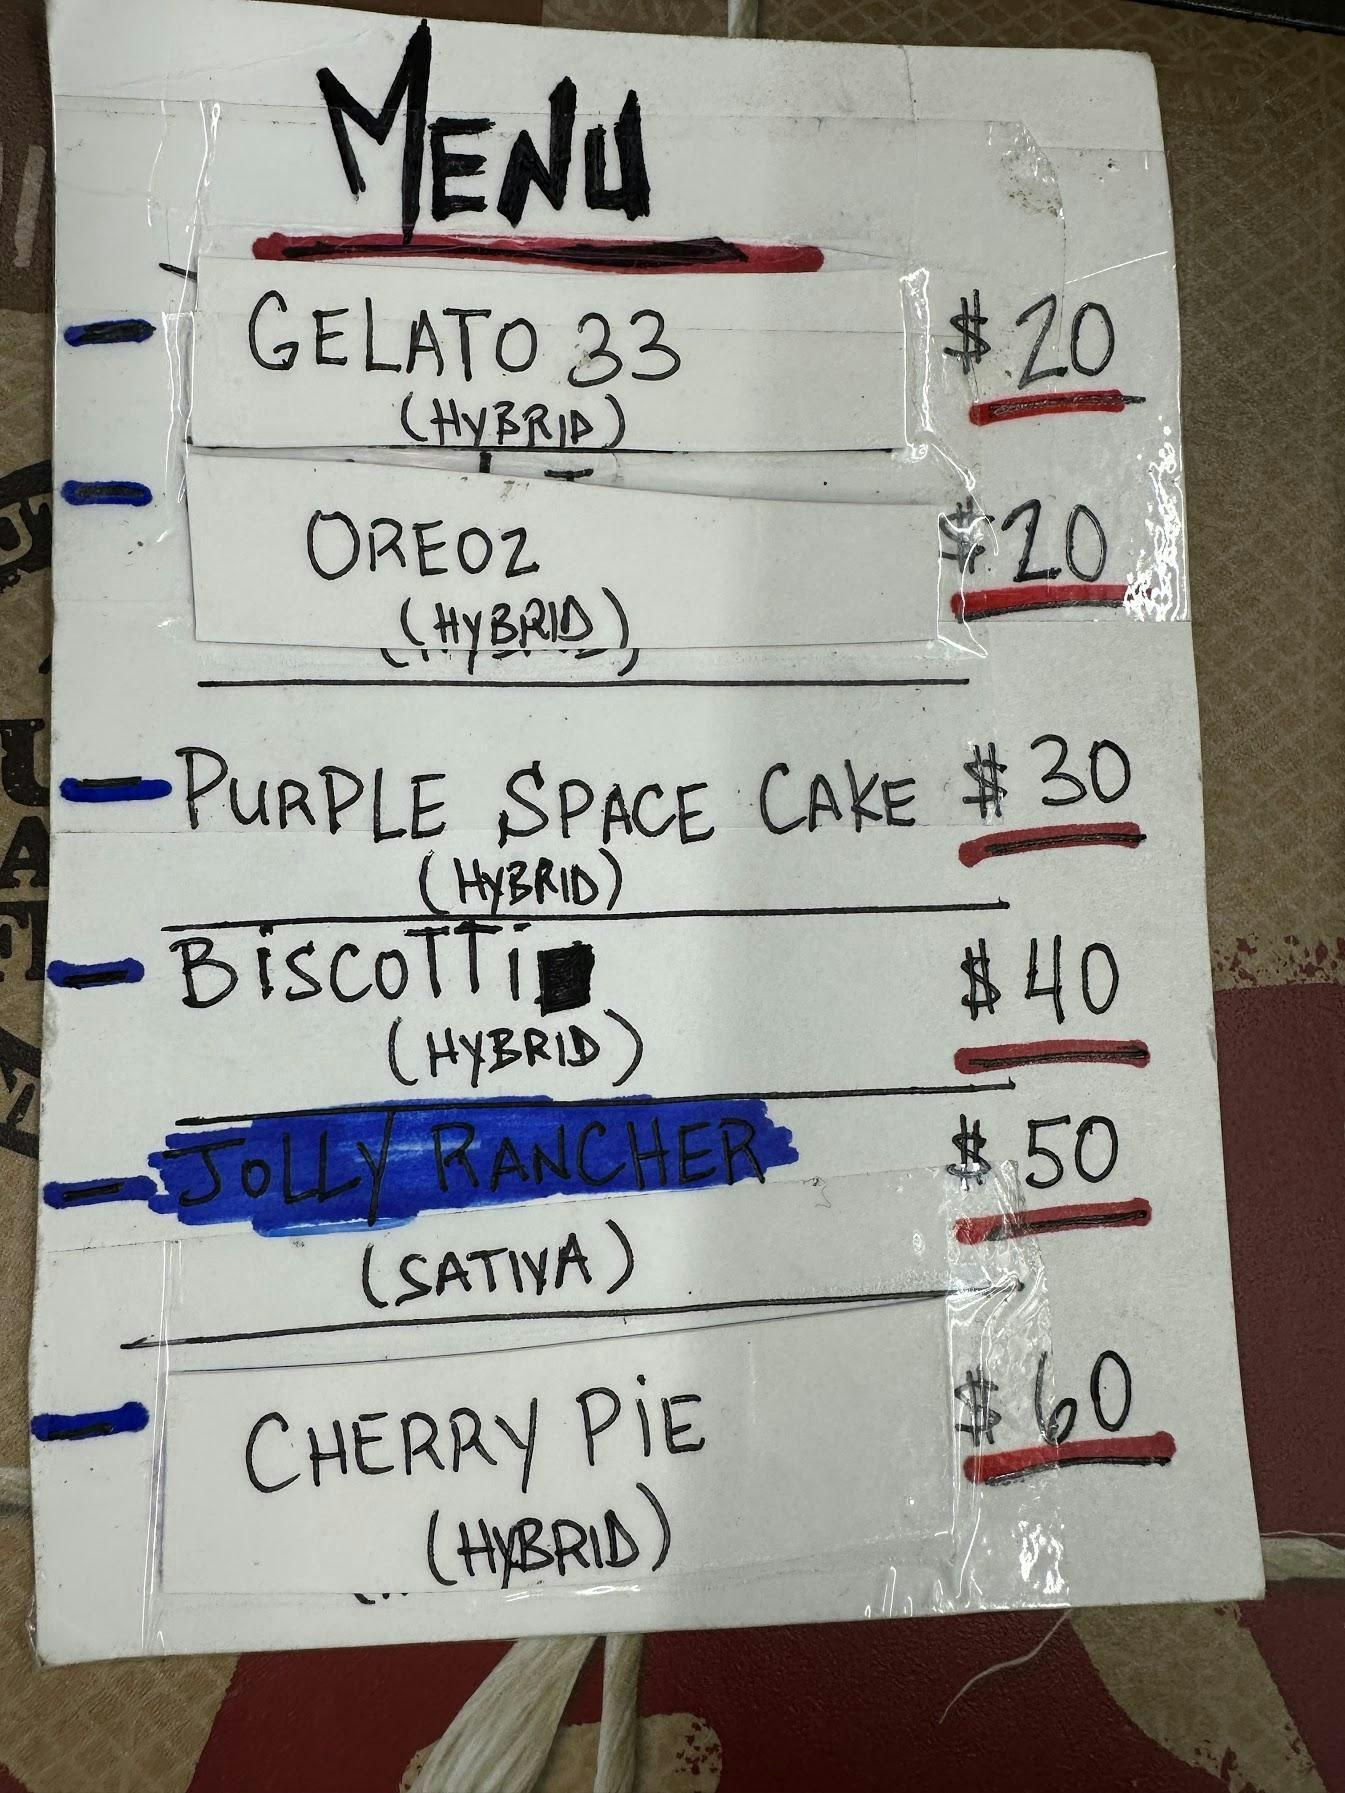 MENU
GELATO 33 $20
(HYBRID)
OREOZ $20
(HYBRID)
PURPLE SPACE CAKE $30
(HYBRID)
BiSCOTTi $40
(HYBRID)
JOLLY RANCHER $50
(SATIVA)
CHERRY PiE $60
(HYBRID)